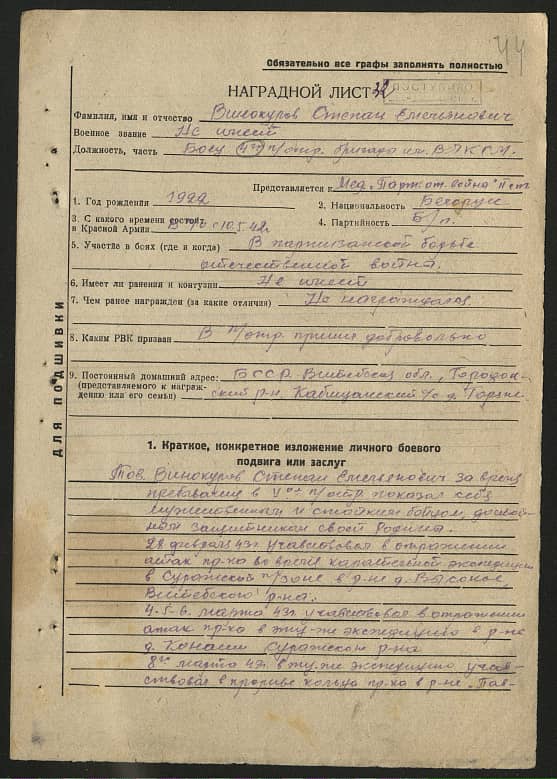 44
Обязательно все графы заполнять полностью
ПОСТУПИЛО
НАГРАДНОЙ ЛИСТ
Фамилия, имя и отчество Винокуров Степан Емельянович
Военное звание Не имеет
Должность, часть Боец п/отр. бригада им. ВЛКСМ.
Представляется к Мед. "Парт. от. война" II ст.
1. Год рождения 1922 2. Национальность Белорус
3. С какого времени состоит в Красной Армии В п/о с 10.5.42г. 4. Партийность Б/п.
5. Участие в боях (где и когда) В партизанской борьбе
отечественной война.
6. Имеет ли ранения и контузии Не имеет
7. Чем ранее награжден (за какие отличия) Не награждался
8. Каким РВК призван В п/отр. пришел добровольно
9. Постоянный домашний адрес: БССР. Витебская обл., Городок-
(представляемого к награж- ский р-н. Кабищанский с/с д.
дению или его семьи)
ДЛЯ ПОДШИВКИ
1. Краткое, конкретное изложение личного боевого
подвига или заслуг
Тов. Винокуров Степан Емельянович за время
пребывания в п/отр. показал себя
мужественным и стойким бойцом, достой-
ным защитником своей Родины.
28 февраля 43г. участвовал в отражении
атак пр-ка во время карательной экспедиции
в Суражской п/зоне в р-не д. Высокое,
Витебского р-на.
4-5-6. марта 43г. участвовал в отражении
атак пр-ка в эту-же экспедицию в р-не
д. Канаши Суражского р-на
8го марта 43г. в эту-же экспедицию участ-
ствовал в прорыве кольца пр-ка в р-не "Пав-